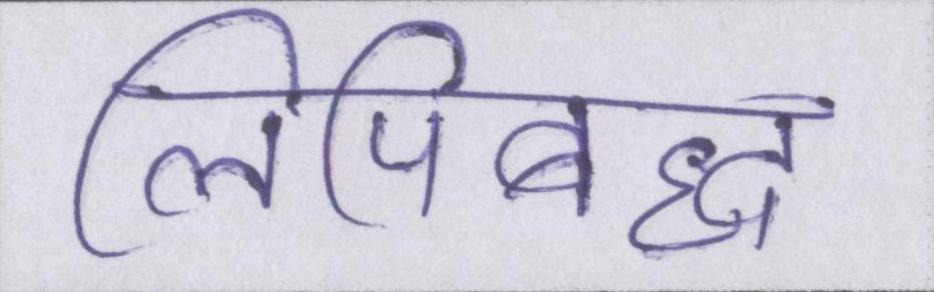 लिपिबद्ध